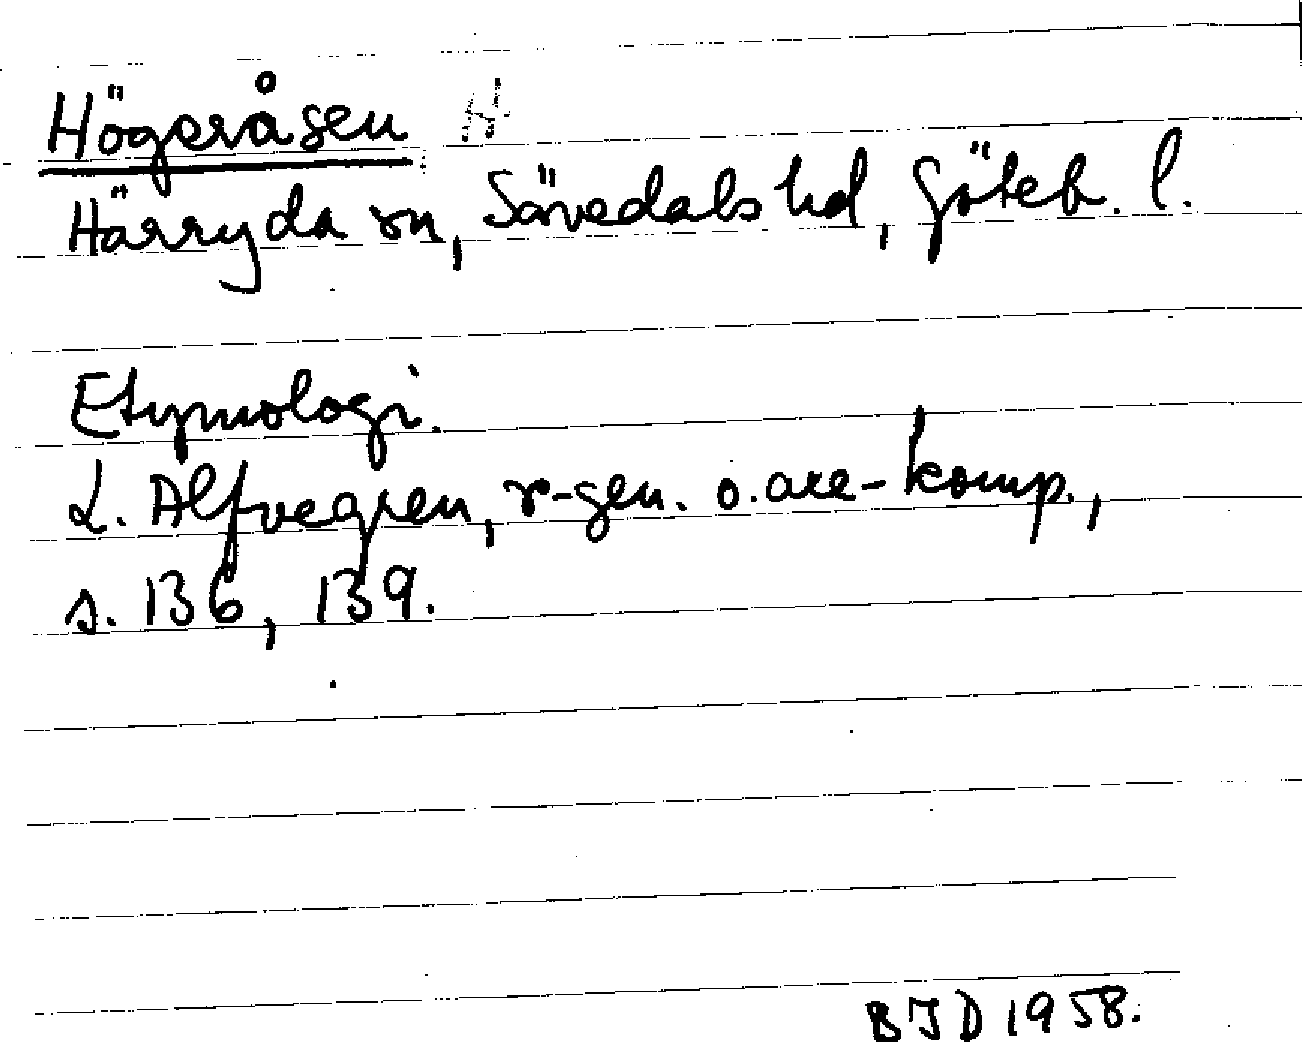 Högeråsen
Härryda sn, Sävedals hd, Göteb. l.
Etymologi.
L. Alfvegren, r-gen. o. are-komp.,
s. 136, 139.
BJD 1958.